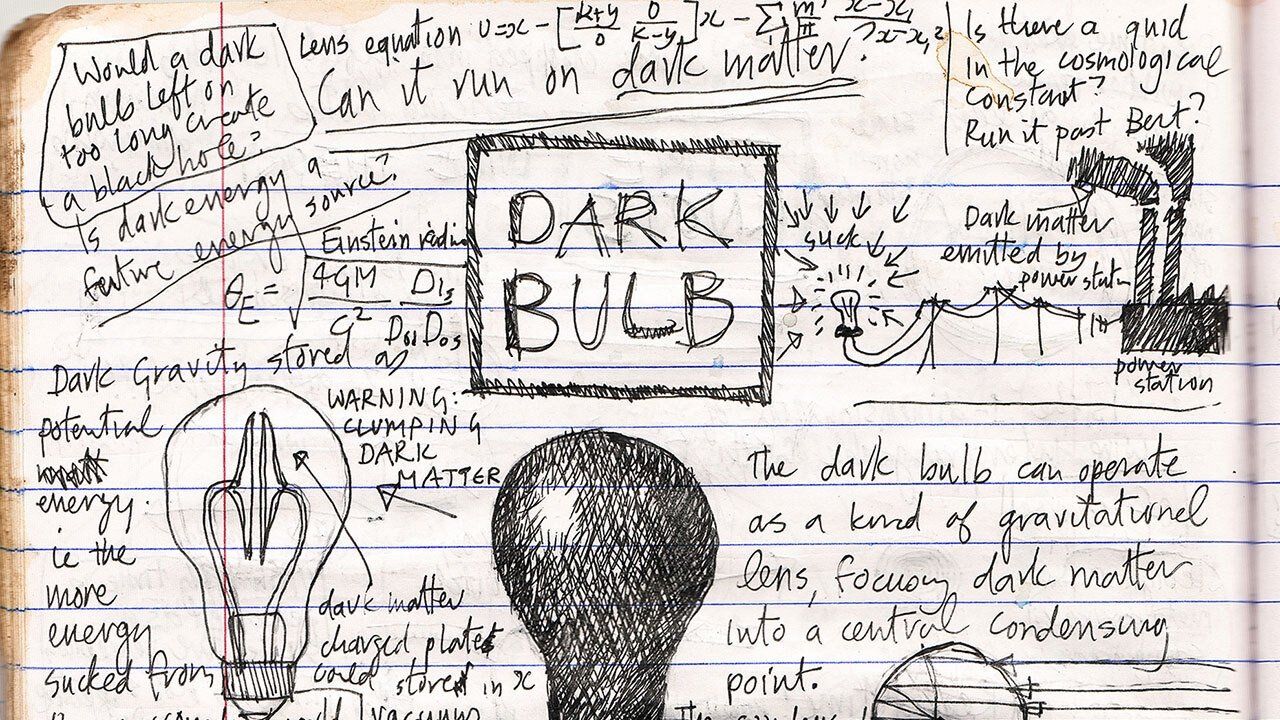 Would a dark
bulb left on
too long create
a black hole?
Lens equation
Can it run on dark matter?
Is there a quid
in the cosmological
constant?
Run it past Bert?
Is dark energy a
future energy source?
Einstein radius
θE = √ 4GM/c² Dls/DolDos
DARK
BULB
suck
Dark matter
emitted by
power station
power
station
Dark Gravity stored as
potential
energy.
ie the
more
energy
sucked from
WARNING:
CLUMPING
DARK
MATTER
dark matter
charged plates
could stored in x
vacuum
The dark bulb can operate
as a kind of gravitational
lens, focusing dark matter
into a central condensing
point.